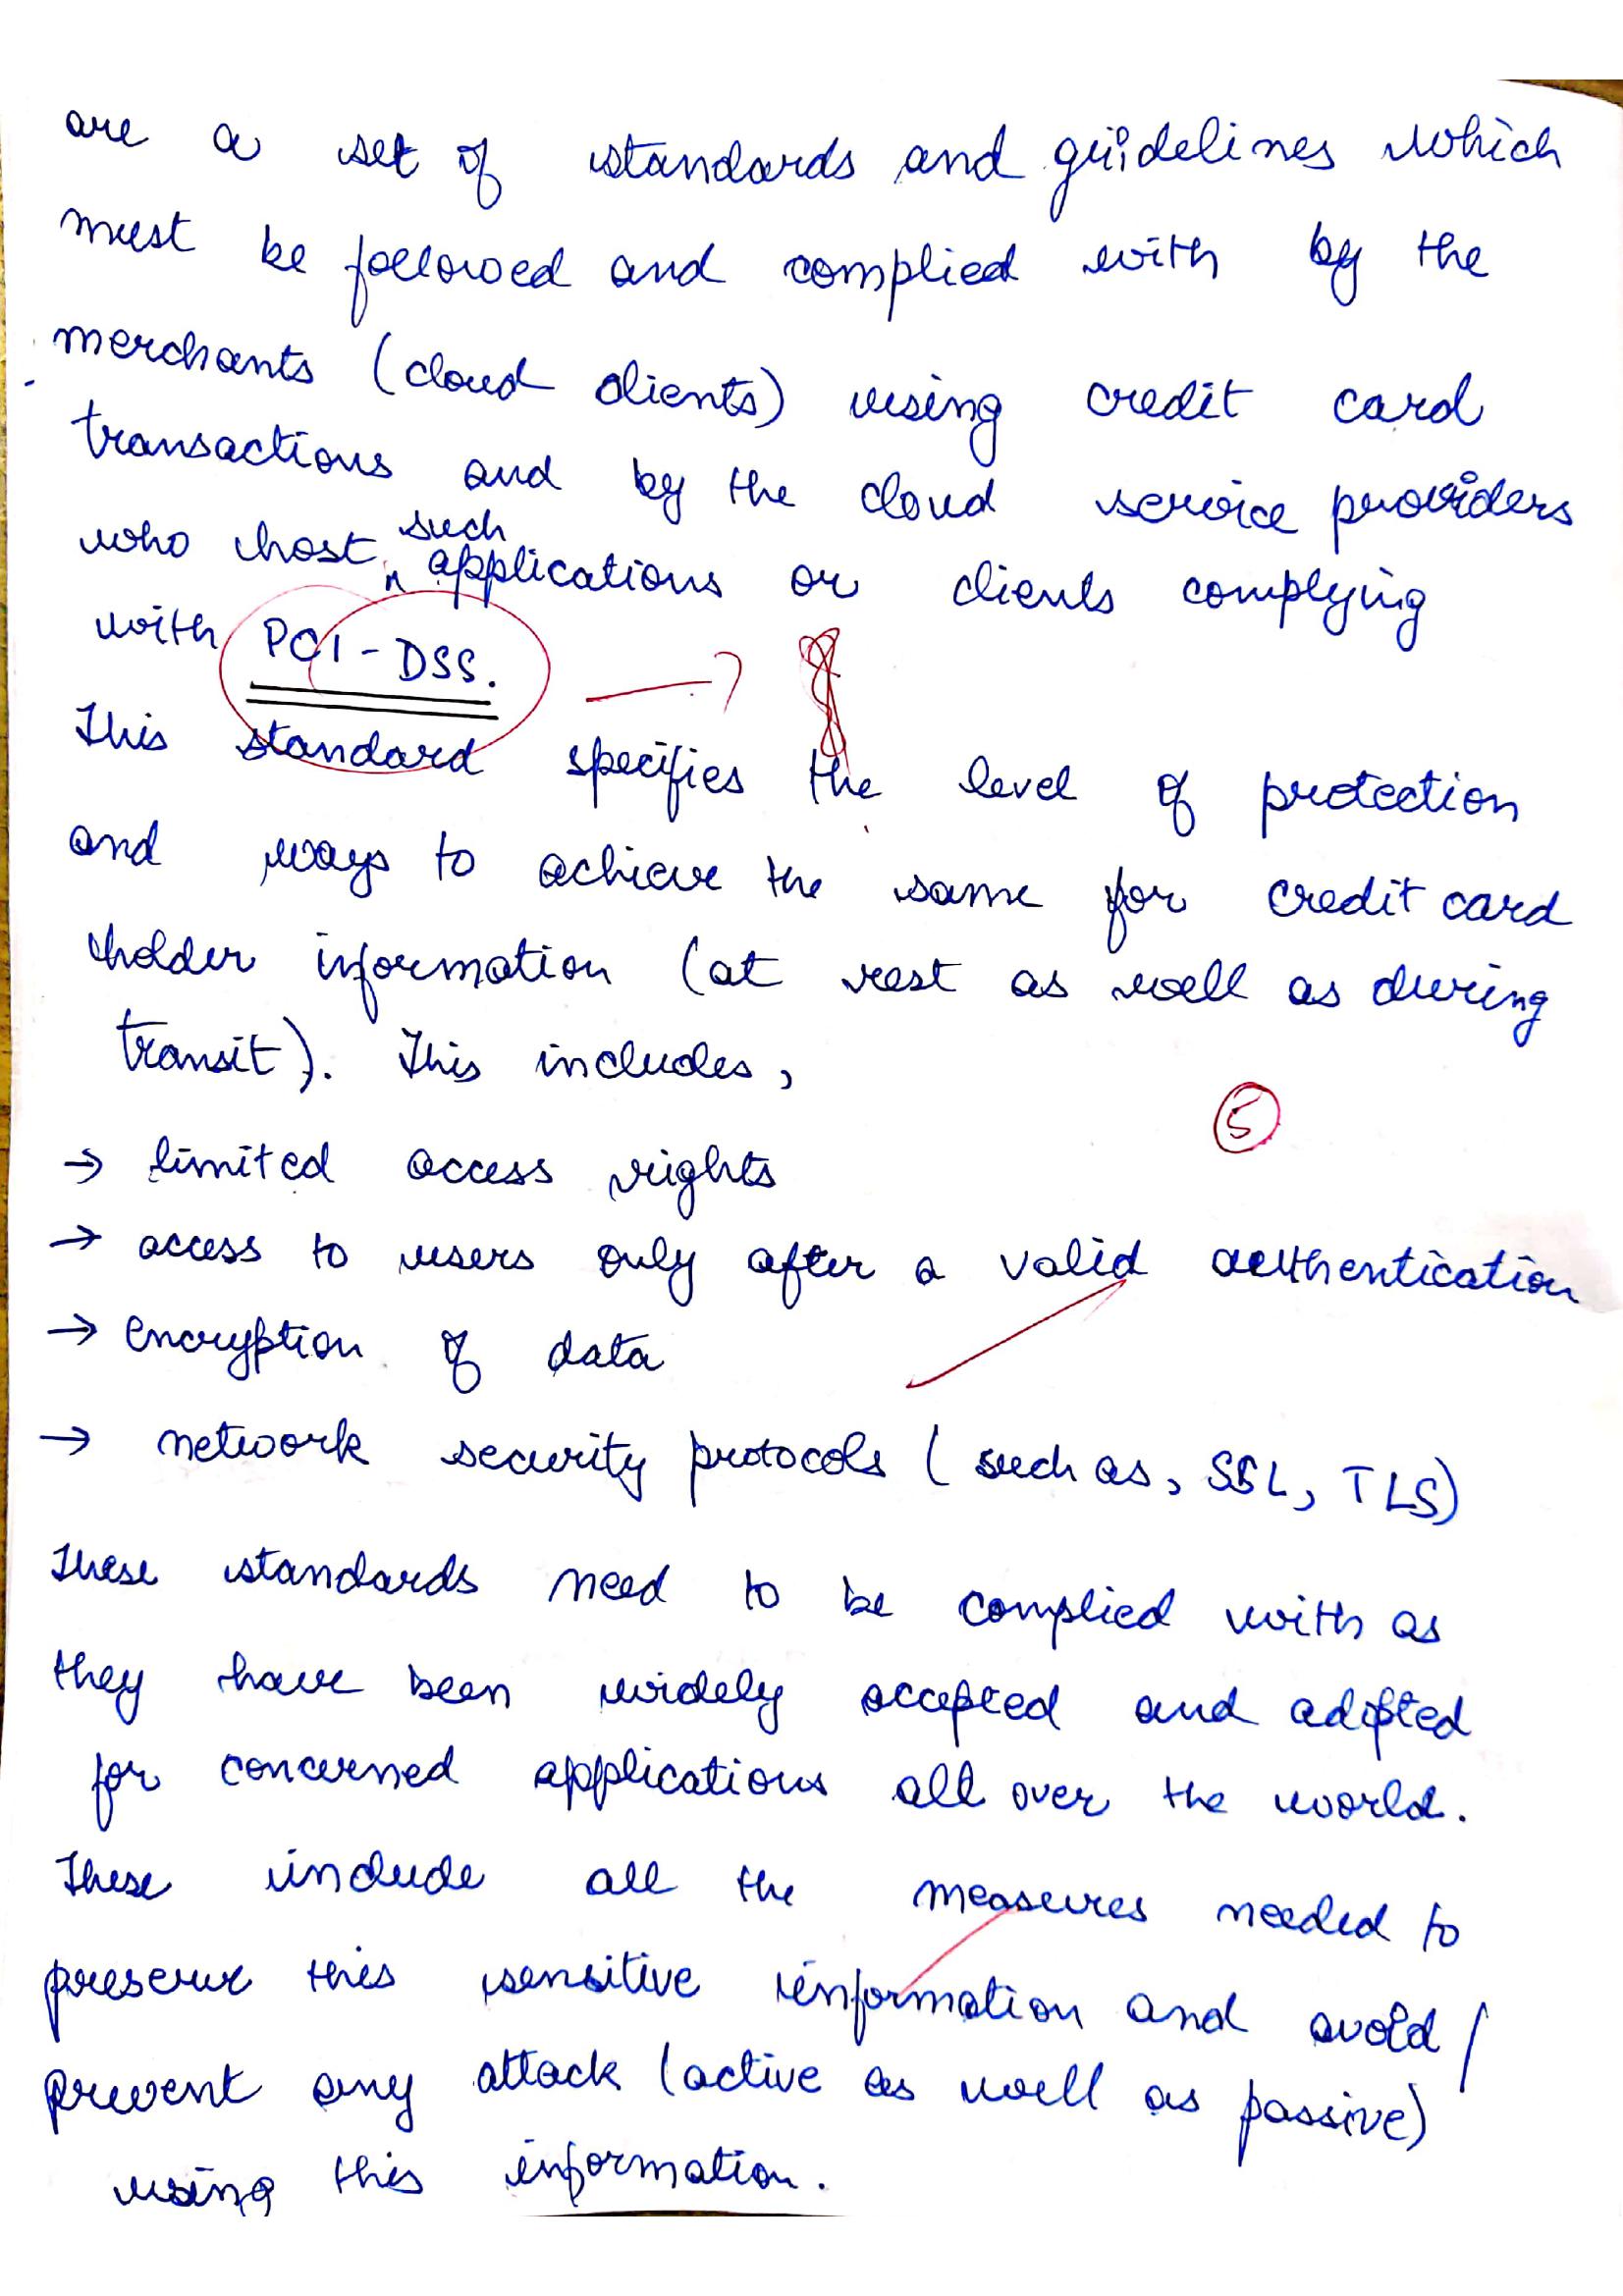 are a set of standards and guidelines which
must be followed and complied with by the
merchants (cloud clients) using credit card
transactions and by the cloud service providers
who host such applications or clients complying
with PCI-DSS. → ?
This standard specifies the level of protection
and ways to achieve the same for credit card
holder information (at rest as well as during
transit). This includes,
5
→ limited access rights
→ access to users only after a valid authentication
→ encryption of data
→ network security protocols (such as, SSL, TLS)
These standards need to be complied with as
they have been widely accepted and adopted
for concerned applications all over the world.
These include all the measures needed to
preserve this sensitive information and avoid/
prevent any attack (active as well as passive)
using this information.